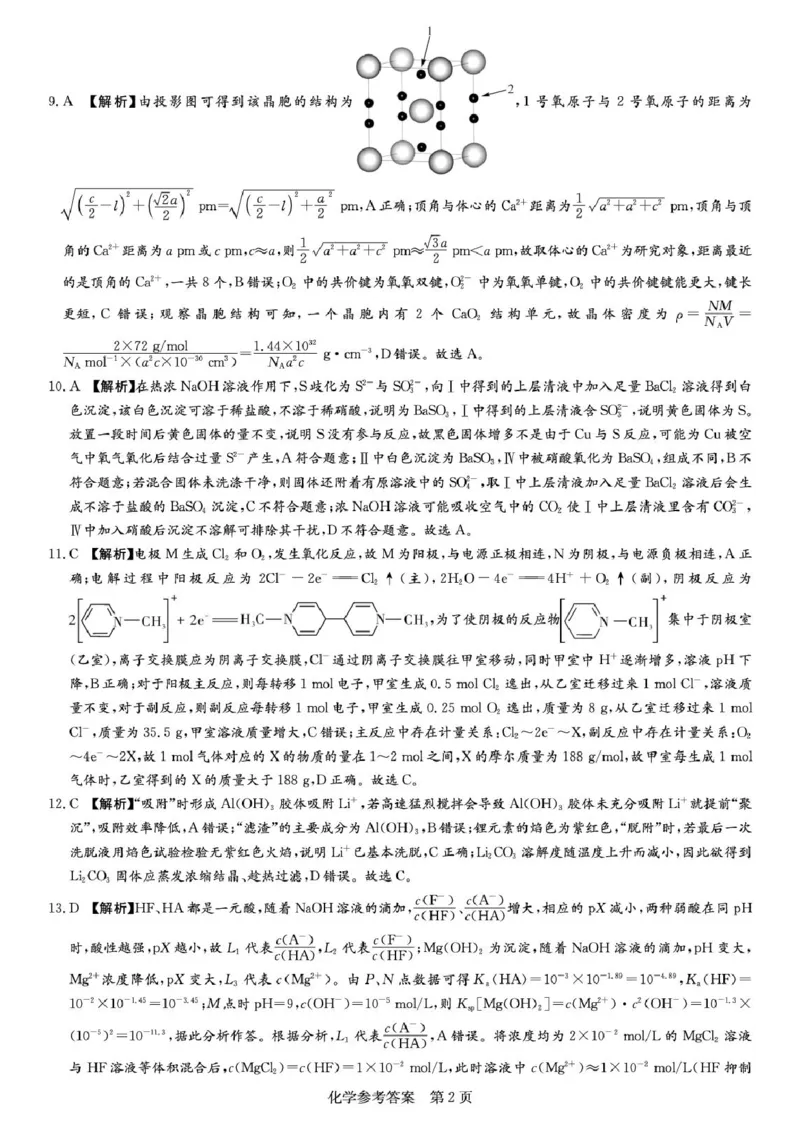 1
2
9. A 【解析】由投影图可得到该晶胞的结构为 ,1 号氧原子与 2 号氧原子的距离为
√((c/2−l)²+(√2a/2)²) pm=√((c/2−l)²+a²/2) pm,A正确;顶角与体心的 Ca²⁺距离为 1/2 √(a²+a²+c²) pm,顶角与顶
角的Ca²⁺距离为a pm或c pm,c≈a,则 1/2 √(a²+a²+c²) pm≈ √3a/2 pm<a pm,故取体心的Ca²⁺为研究对象,距离最近
的是顶角的 Ca²⁺,一共 8 个,B错误;O₂ 中的共价键为氧氧双键,O₂²⁻ 中为氧氧单键,O₂ 中的共价键键能更大,键长
更短,C 错误;观察晶胞结构可知,一个晶胞内有 2 个 CaO₂ 结构单元,故晶体密度为 ρ= NM/(N_A V) =
2×72 g/mol/(N_A mol⁻¹×(a²c×10⁻³⁰ cm³)) = 1.44×10³²/(N_A a²c) g·cm⁻³,D错误。故选 A。
10. A 【解析】在热浓NaOH溶液作用下,S歧化为 S²⁻与 SO₃²⁻,向Ⅰ中得到的上层清液中加入足量 BaCl₂ 溶液得到白
色沉淀,该白色沉淀可溶于稀盐酸,不溶于稀硝酸,说明为BaSO₃,Ⅰ中得到的上层清液含SO₃²⁻,说明黄色固体为 S。
放置一段时间后黄色固体的量不变,说明 S没有参与反应,故黑色固体增多不是由于Cu与S反应,可能为Cu被空
气中氧气氧化后结合过量 S²⁻产生,A符合题意;Ⅱ中白色沉淀为BaSO₃,Ⅳ中被硝酸氧化为BaSO₄,组成不同,B不
符合题意;若混合固体未洗涤干净,则固体还附着有原溶液中的 SO₄²⁻,取Ⅰ中上层清液加入足量 BaCl₂ 溶液后会生
成不溶于盐酸的 BaSO₄ 沉淀,C不符合题意;浓 NaOH溶液可能吸收空气中的 CO₂ 使Ⅰ中上层清液里含有 CO₃²⁻,
Ⅳ中加入硝酸后沉淀不溶解可排除其干扰,D不符合题意。故选 A。
11. C 【解析】电极 M生成 Cl₂ 和 O₂,发生氧化反应,故 M为阳极,与电源正极相连,N为阴极,与电源负极相连,A正
确;电解过程中阳极反应为 2Cl⁻−2e⁻══Cl₂↑(主),2H₂O−4e⁻══4H⁺+O₂↑(副),阴极反应为
2[N—CH₃]⁺+2e⁻══H₃C—N N—CH₃,为了使阴极的反应物[N—CH₃]⁺集中于阴极室
(乙室),离子交换膜应为阴离子交换膜,Cl⁻通过阴离子交换膜往甲室移动,同时甲室中 H⁺逐渐增多,溶液 pH下
降,B正确;对于阳极主反应,则每转移 1 mol电子,甲室生成 0.5 mol Cl₂ 逸出,从乙室迁移过来 1 mol Cl⁻,溶液质
量不变,对于副反应,则副反应每转移 1 mol电子,甲室生成 0.25 mol O₂ 逸出,质量为 8 g,从乙室迁移过来 1 mol
Cl⁻,质量为35.5 g,甲室溶液质量增大,C错误;主反应中存在计量关系:Cl₂～2e⁻～X,副反应中存在计量关系:O₂
～4e⁻～2X,故 1 mol气体对应的 X的物质的量在1～2 mol之间,X的摩尔质量为 188 g/mol,故甲室每生成 1 mol
气体时,乙室得到的 X的质量大于188 g,D正确。故选 C。
12. C 【解析】“吸附”时形成 Al(OH)₃ 胶体吸附 Li⁺,若高速猛烈搅拌会导致 Al(OH)₃ 胶体未充分吸附 Li⁺就提前“聚
沉”,吸附效率降低,A错误;“滤渣”的主要成分为 Al(OH)₃,B错误;锂元素的焰色为紫红色,“脱附”时,若最后一次
洗脱液用焰色试验检验无紫红色火焰,说明 Li⁺已基本洗脱,C正确;Li₂CO₃ 溶解度随温度上升而减小,因此欲得到
Li₂CO₃ 固体应蒸发浓缩结晶、趁热过滤,D错误。故选 C。
13. D 【解析】HF、HA都是一元酸,随着 NaOH溶液的滴加, c(F⁻)/c(HF)、c(A⁻)/c(HA)增大,相应的 pX减小,两种弱酸在同 pH
时,酸性越强,pX越小,故 L₁ 代表 c(A⁻)/c(HA),L₂ 代表 c(F⁻)/c(HF);Mg(OH)₂ 为沉淀,随着 NaOH 溶液的滴加,pH 变大,
Mg²⁺浓度降低,pX 变大,L₃ 代表 c(Mg²⁺)。由 P、N 点数据可得 Kₐ(HA)=10⁻³×10⁻¹·⁸⁹=10⁻⁴·⁸⁹,Kₐ(HF)=
10⁻²×10⁻¹·⁴⁵=10⁻³·⁴⁵;M点时 pH=9,c(OH⁻)=10⁻⁵ mol/L,则 K_sp[Mg(OH)₂]=c(Mg²⁺)·c²(OH⁻)=10⁻¹·³×
(10⁻⁵)²=10⁻¹¹·³,据此分析作答。根据分析,L₁ 代表 c(A⁻)/c(HA),A错误。将浓度均为 2×10⁻² mol/L的 MgCl₂ 溶液
与 HF溶液等体积混合后,c(MgCl₂)=c(HF)=1×10⁻² mol/L,此时溶液中 c(Mg²⁺)≈1×10⁻² mol/L(HF 抑制
化学参考答案 第 2 页